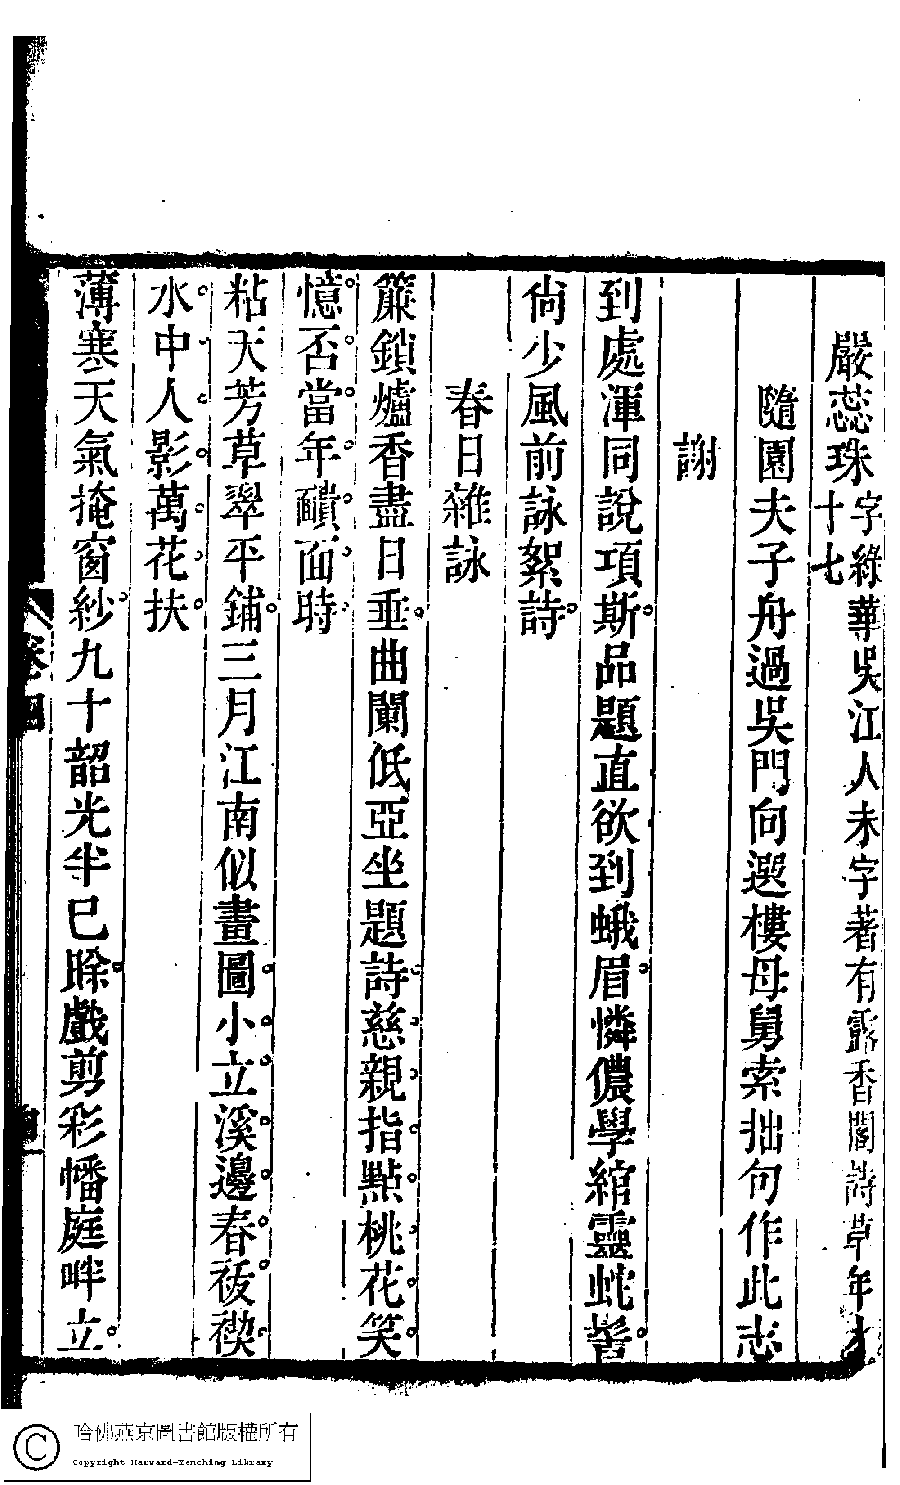 嚴蕊珠字綠華吳江人未字著有露香閣詩草年才十七
隨園夫子舟過吳門向選樓母舅索拙句作此志
謝
到處渾同說項斯。品題直欲到蛾眉。憐儂學綰靈蛇髻。
尙少風前詠絮詩。
春日雜詠
簾鎖爐香盡日垂。曲闌低亞坐題詩。慈親指點桃花笑。
憶否當年靧面時
粘天芳草翠平鋪。三月江南似畫圖。小立溪邊春祓禊。
水中人影萬花扶。
薄寒天氣掩窗紗。九十韶光半巳賖。戲剪彩幡庭畔立。
卷四
哈佛燕京圖書館版權所有
Copyright Harvard-Yenching Library